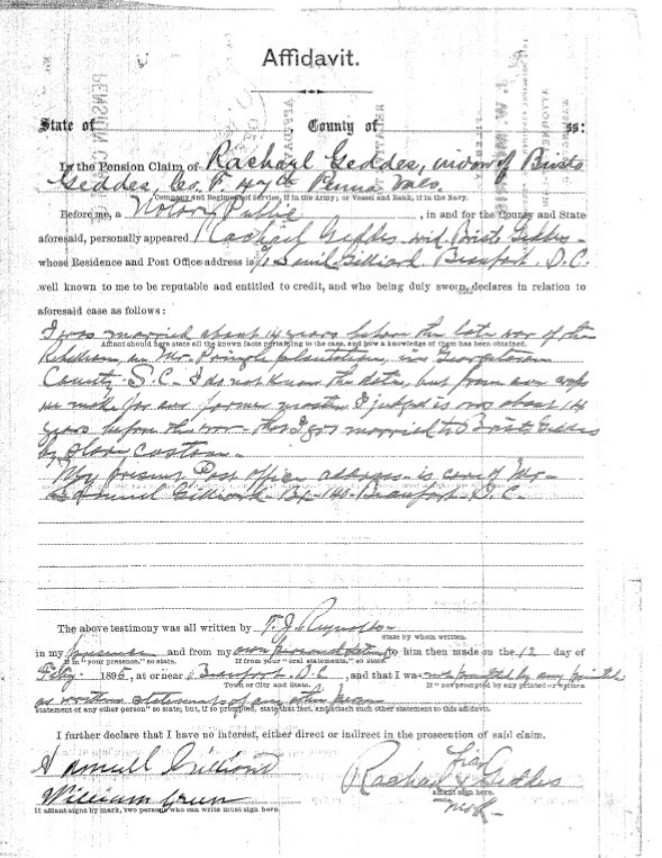 Affidavit.
State of County of ss:
In the Pension Claim of Rachael Geddes, widow of Bristo
Geddes, Co. F. 47th Penna Vols.
Company and Regiment of Service, if in the Army; or Vessel and Rank, if in the Navy.
Before me, a Notary Public, in and for the County and State
aforesaid, personally appeared Rachael Geddes wid. Bristo Geddes
whose Residence and Post Office address is c/o Samuel Gilliard. Beaufort. S.C.
well known to me to be reputable and entitled to credit, and who being duly sworn, declares in relation to
aforesaid case as follows:
I was married about 14 years before the late war of the
Affiant should here state all the known facts pertaining to the case, and how a knowledge of them has been obtained.
Rebellion, on Mr. Pringle plantation, in Georgetown
County S.C. I do not know the date, but from our crops
we make for our former master I judged is was about 14
years before the war - that I got married to Bristo Geddes
by slave custom.
My present Post office address is care of Mr.
Samuel Gilliard - Bx - 140 - Beaufort S.C.
The above testimony was all written by T. J. Reynolds
state by whom written.
in my presence and from my own personal to him then made on the 12 day of
If in "your presence," so state. If from your "oral statements," so state.
Feby. 1895, at or near Beaufort. S.C, and that I was not prompted by any printed
Town or City and State. If "not prompted by any printed or written
or written statements of any other person
statement of any other person" so state; but, if so prompted, state that fact, and attach such other statement to this affidavit.
I further declare that I have no interest, either direct or indirect in the prosecution of said claim.
Samuell Gilliard her
William Rachael x Geddes
affiant sign here.
If affiant signs by mark, two persons who can write must sign here. mark